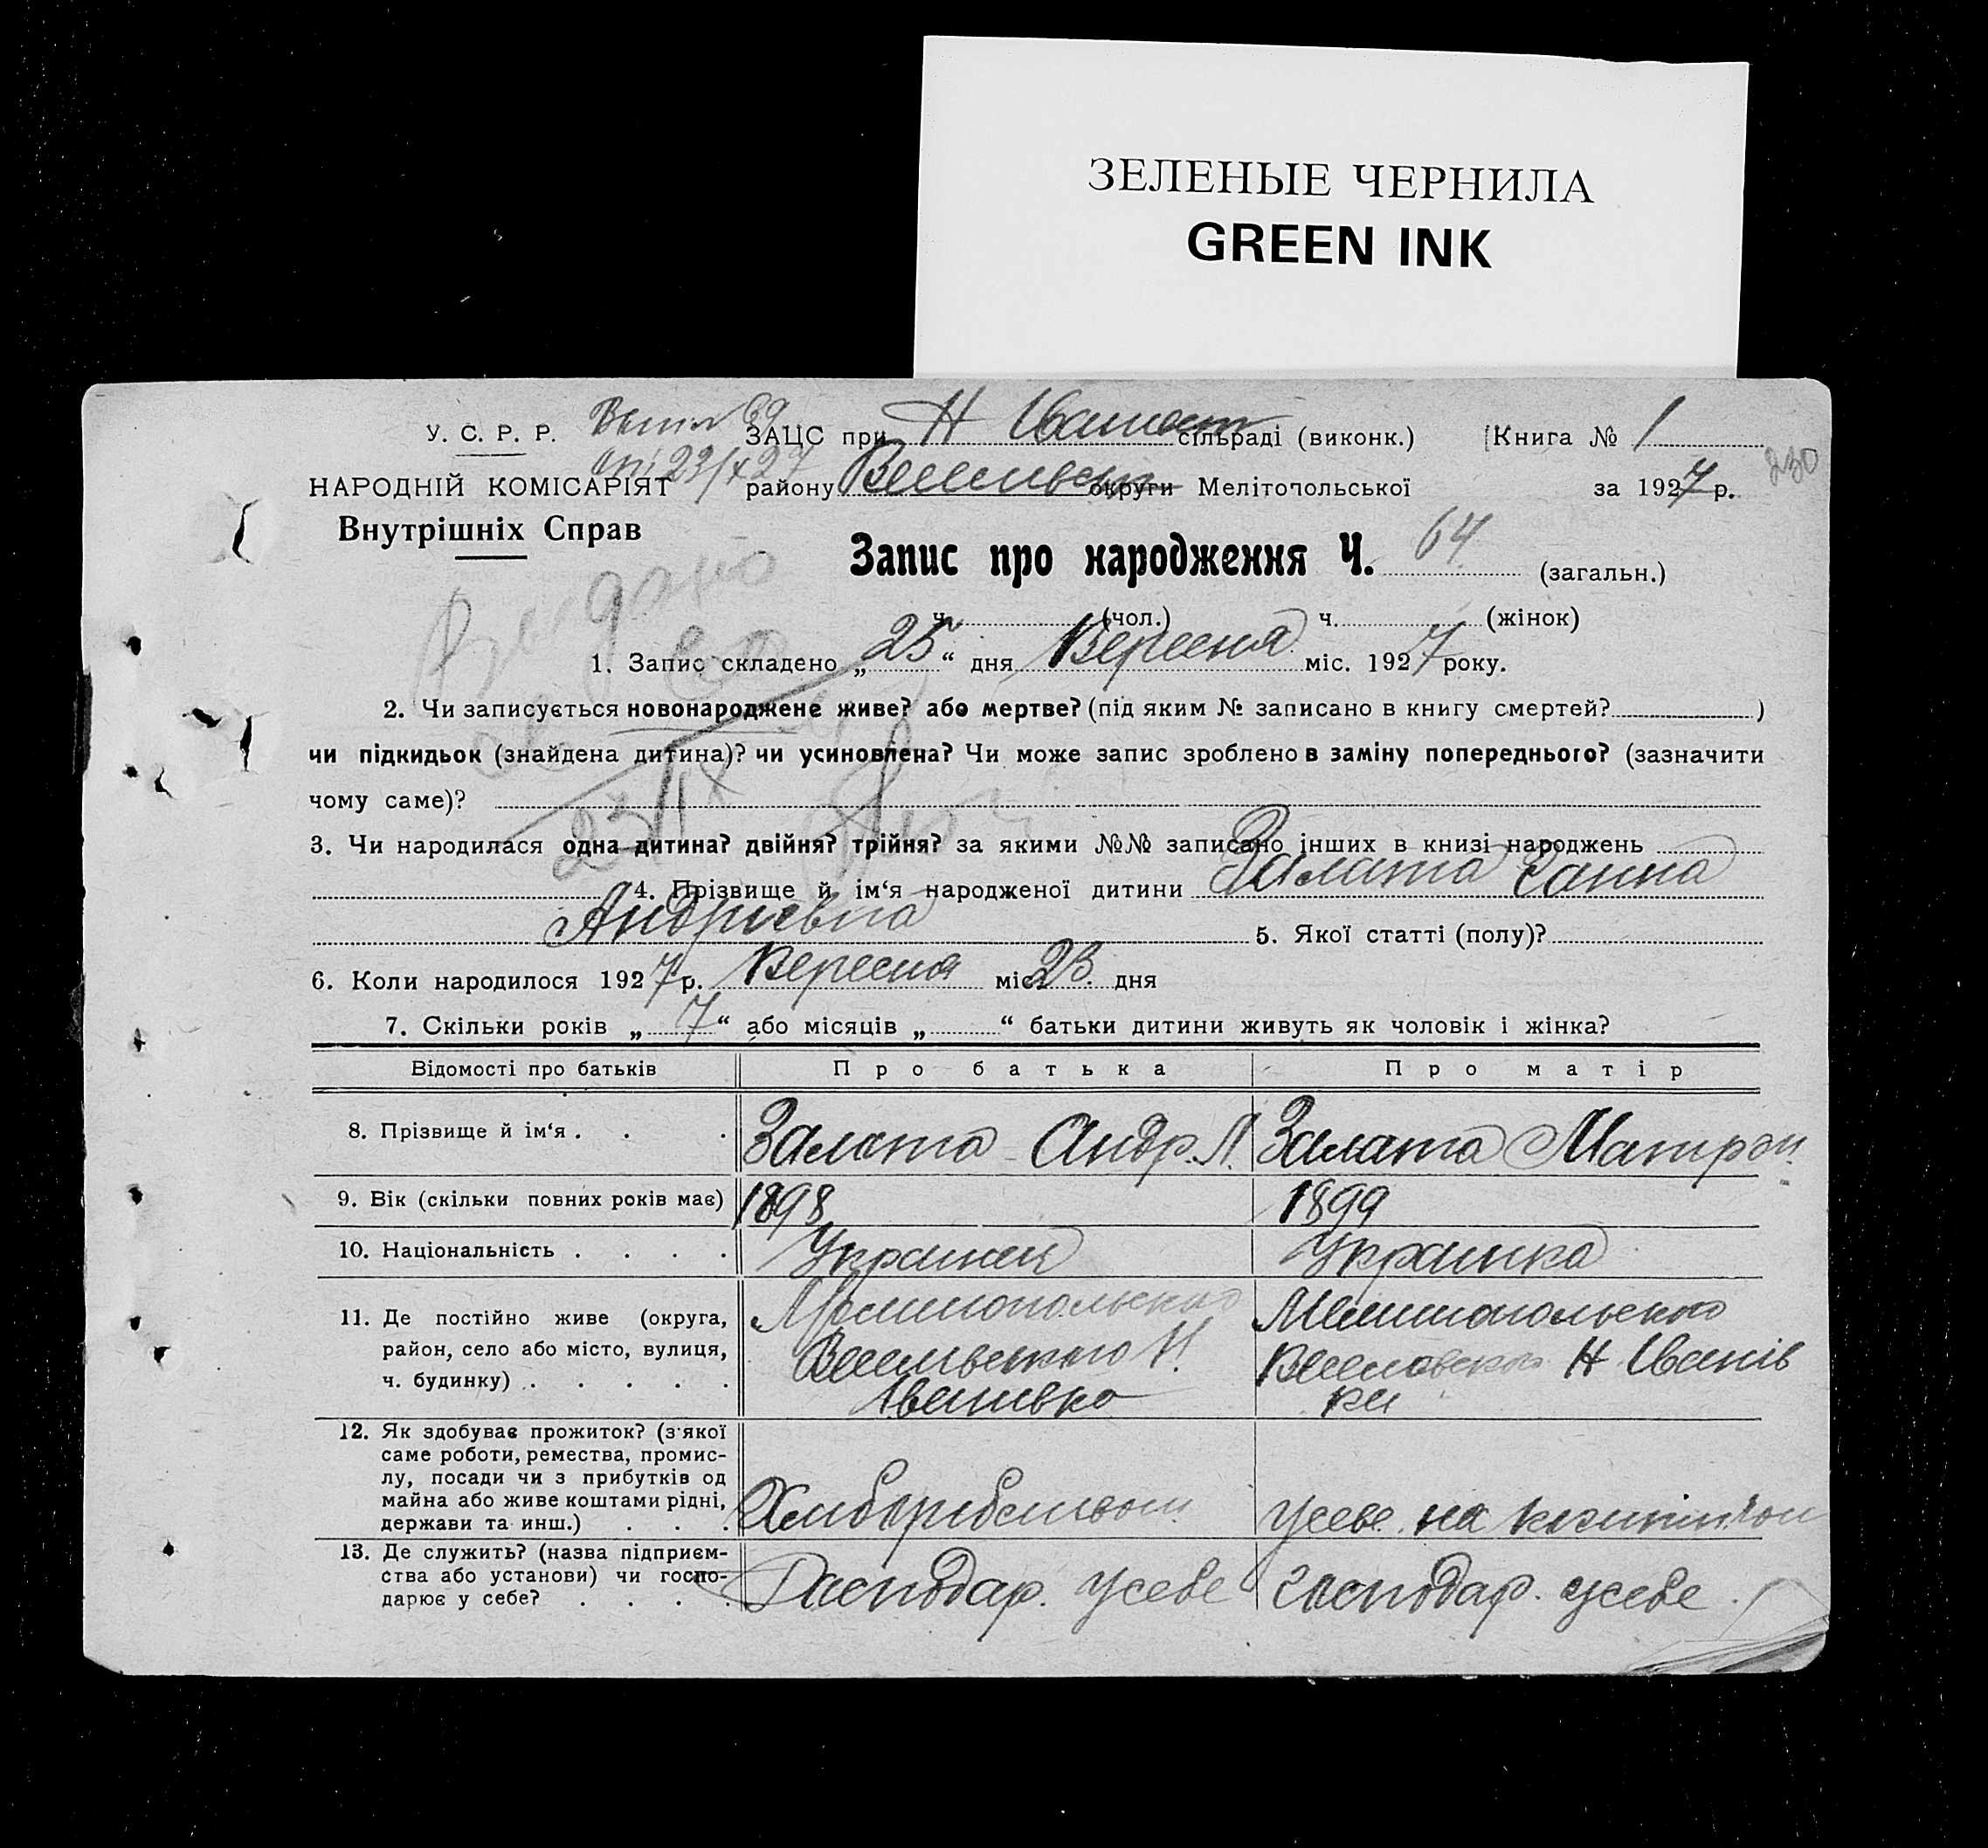 ЗЕЛЕНЫЕ ЧЕРНИЛА
GREEN INK
У. С. Р. Р. ЗАЦС при Н Іваност сільраді (виконк.) Книга № 1
230
НАРОДНІЙ КОМІСАРІЯТ району Веселивськ округи Мелітопольської за 1927 р.
Внутрішніх Справ
Запис про народження Ч. 64 (загальн.)
ч. (чол.) ч. (жінок)
1. Запис складено „25“ дня Вересня міс. 1927 року.
2. Чи записується новонароджене живе? або мертве? (під яким № записано в книгу смертей? )
чи підкидьок (знайдена дитина)? чи усиновлена? Чи може запис зроблено в заміну попереднього? (зазначити
чому саме)?
23/IX
3. Чи народилася одна дитина? двійня? трійня? за якими №№ записано інших в книзі народжень
4. Прізвище й ім‘я народженої дитини Залата Ганна
Андріевна 5. Якої статті (полу)?
6. Коли народилося 1927 р. Вересня міс. 23. дня
7. Скільки років „7“ або місяців „ “ батьки дитини живуть як чоловік і жінка?
Відомості про батьків Про батька Про матір
8. Прізвище й ім‘я . . . Залата Андр. Л. Залата Матрон.
9. Вік (скільки повних років має) 1898 1899
10. Національність . . . . Украинец Украинка
11. Де постійно живе (округа, Мелитопольского Мелитопольского
район, село або місто, вулиця, Веселивського Н. Веселовского Н Іванів
ч. будинку) . . . . . Іванивка ки
12. Як здобуває прожиток? (з якої
саме роботи, ремества, промис-
лу, посади чи з прибутків од
майна або живе коштами рідні, Хлиборобством усебе на
держави та инш.) . . .
13. Де служить? (назва підприєм-
ства або установи) чи госпо- Господар. усебе господар. усебе
дарює у себе? . . . .